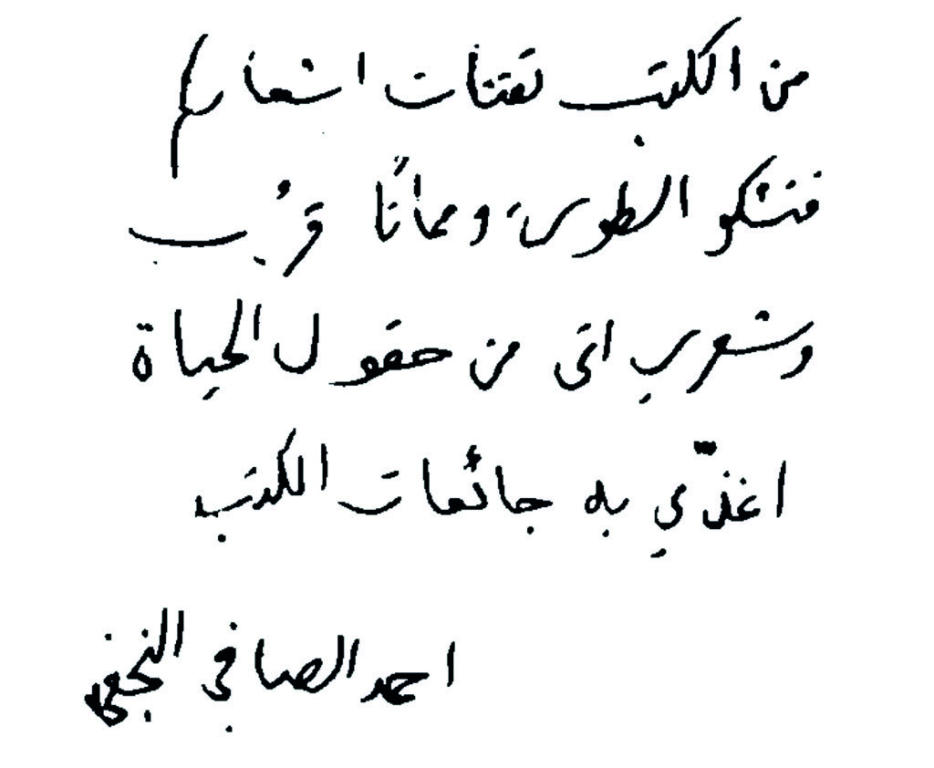 من الكتب تقتات اشعارهم
فتشكو الطوى ومماتًا قرُب
وشعري اتى من حقول الحياة
اغذّي به جائعات الكتب
احمد الصافي النجفي